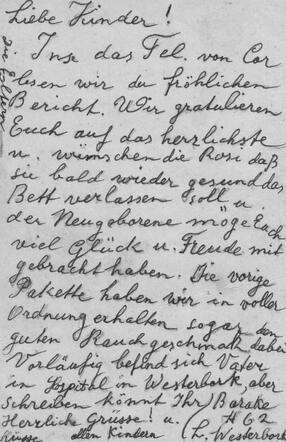 Liebe Kinder!
Inse das Tel. von Cor
lesen wir du fröhlichen
Bericht. Wir gratulieren
Euch auf das herzlichste
u. wünschen die Rosi daß
sie bald wieder gesund das
Bett verlassen soll u.
der Neugeborene möge Euch
viel Glück u. Freude mit
gebracht haben. Die vorige
Pakette haben wir in voller
Ordnung erhalten sogar den
guten Rauchgeschmack dabei
Vorläufig befind sich Vater
in Spital in Westerbork, aber
schreiben könnt Ihr) Barake
Herzliche Grüsse! u. H 62
Küsse allen Kindern (L. Westerbork
die Eltern